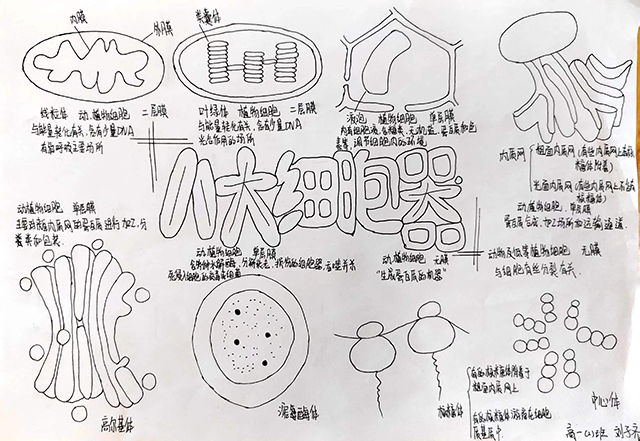 内膜
外膜
类囊体
线粒体 动、植物细胞 二层膜
与能量转化有关,含有少量DNA
有氧呼吸主要场所
叶绿体 植物细胞 二层膜
与能量转化有关,含有少量DNA
光合作用的场所
液泡 植物细胞 单层膜
内有细胞液,含糖类、无机盐、蛋白质和色
素等,调节细胞内的环境
内质网
粗面内质网(有些内质网上有核
糖体附着)
光面内质网(有些内质网上不含
核糖体)
动植物细胞 单层膜
蛋白质合成、加工场所和运输通道
八大细胞器
动植物细胞 单层膜
主要对来自内质网的蛋白质进行加工,分
类和包装
高尔基体
动、植物细胞 单层膜
含多种水解酶,分解衰老、损伤的细胞器,吞噬并杀
死侵入细胞的病毒或细菌
溶酶体
动、植物细胞 无膜
"生成蛋白质的机器"
核糖体
有的核糖体附着于
粗面内质网上
有的核糖体游离在细胞
质基质中
动物及低等植物细胞 无膜
与细胞有丝分裂有关
中心体
高一(2)班